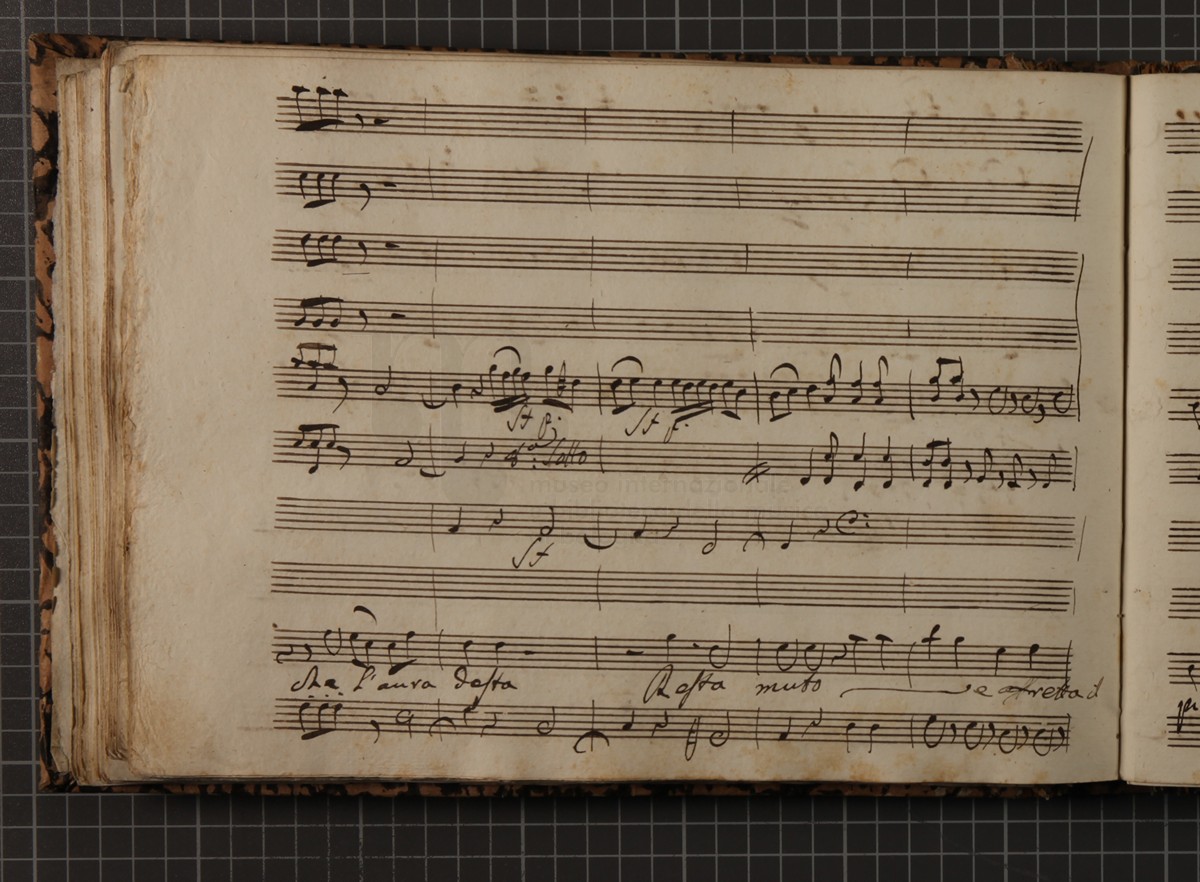 Sf p:
Sf f.
8ª Sotto
museo internazionale
Sf
che l'aura desta Resta muto e affretta il